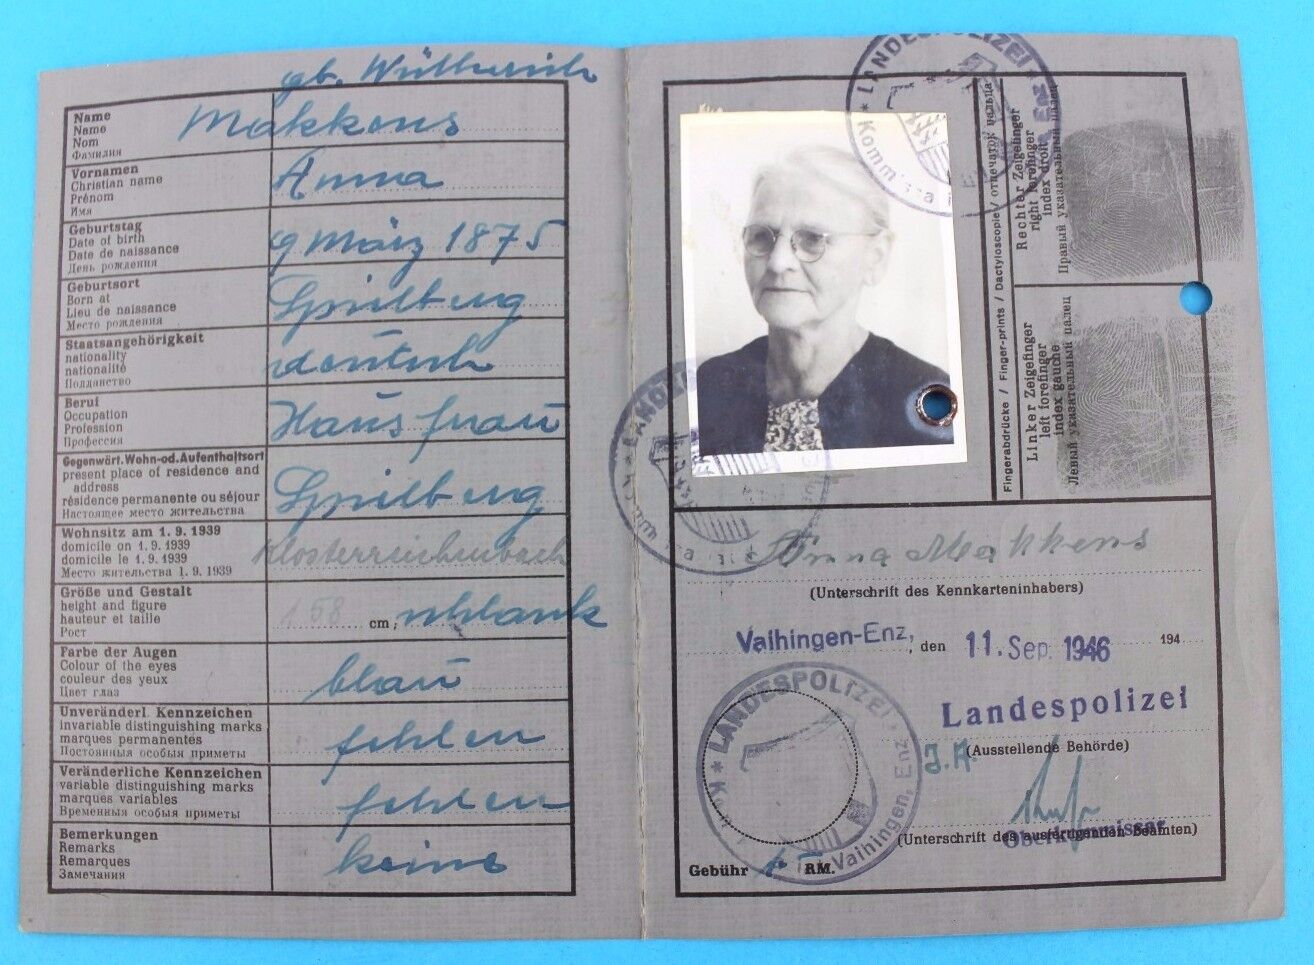 gb. Wütherich
Name
Name
Nom
Фамилия
Makkens
Vornamen
Christian name
Prénom
Имя
Anna
Geburtstag
Date of birth
Date de naissance
День рождения
9 März 1875
Geburtsort
Born at
Lieu de naissance
Место рождения
Spielberg
Staatsangehörigkeit
nationality
nationalité
Подданство
deutsch
Beruf
Occupation
Profession
Профессия
Hausfrau
Gegenwärt. Wohn-od. Aufenthaltsort
present place of residence and
address
résidence permanente ou séjour
Настоящее место жительства
Spielberg
Wohnsitz am 1. 9. 1939
domicile on 1. 9. 1939
domicile le 1. 9. 1939
Место жительства 1. 9. 1939
Klosterreichenbach
Größe und Gestalt
height and figure
hauteur et taille
Рост
158 cm; schlank
Farbe der Augen
Colour of the eyes
couleur des yeux
Цвет глаз
blau
Unveränderl. Kennzeichen
invariable distinguishing marks
marques permanentes
Постоянныя особыя приметы
fehlen
Veränderliche Kennzeichen
variable distinguishing marks
marques variables
Временныя особыя приметы
fehlen
Bemerkungen
Remarks
Remarques
Замечания
keine
LANDESPOLIZEI
Enz
Fingerabdrücke / Finger-prints / Dactyloscopie / отпечаток пальца
Rechter Zeigefinger
right forefinger
index droit
Правый указательный палец
Linker Zeigefinger
left forefinger
index gauche
Левый указательный палец
Anna Makkens
(Unterschrift des Kennkarteninhabers)
Vaihingen-Enz, den 11. Sep. 1946 194
LANDESPOLIZEI
Vaihingen, Enz
Landespolizei
(Ausstellende Behörde)
J.A.
(Unterschrift des ausfertigenden Beamten)
Oberkommissar
Gebühr 1.- RM.